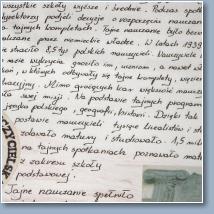 wszystkie szkoły wyższe i średnie. Podczas spot
inspektorzy podjęli decyzję o rozpoczęciu nauczan
na tajnych kompletach. Tajne nauczanie było bezw
karane przez niemieckie władze. W latach 1939
stracono 8,5 tys polskich nauczycieli. Nauczyciele
nie wykrycia groziło im, uczniom a nawet wł
, w których odbywały się tajne komplety, więzie
. Mimo grożących kar większość naucz
swej misji. Na podstawie tajnych program
języka polskiego, geografii, historii. Dzięki tak
postawie nauczycieli tysiące licealistów i st
zdawało matury i studiowało. 1,5 mil
na tajnych spotkaniach poznawało mat
z zakresu szkoły
podstawowej.
Tajne nauczanie spełniło
ZYCIELSK